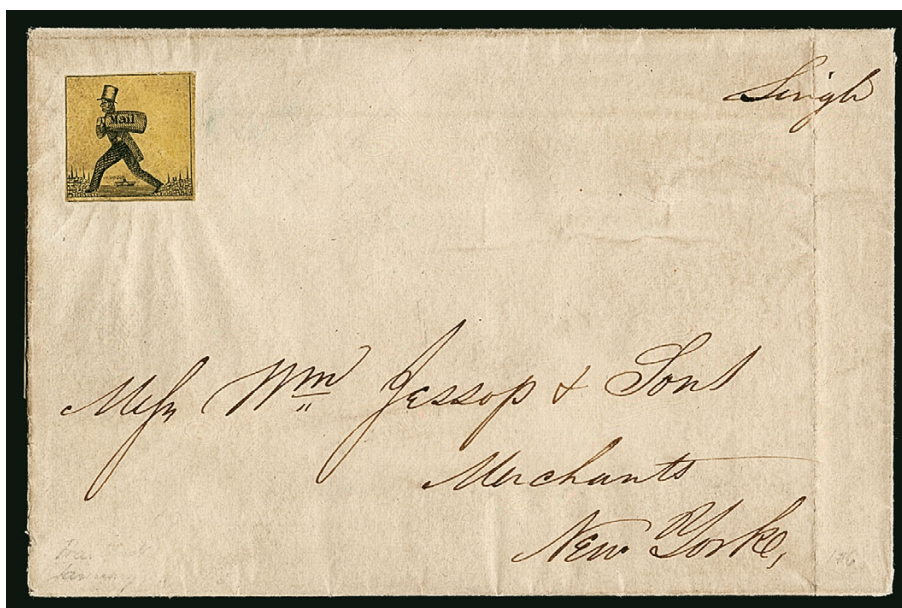 Mail
Single
Messrs Wm Jessop & Sons
Merchants
New York,